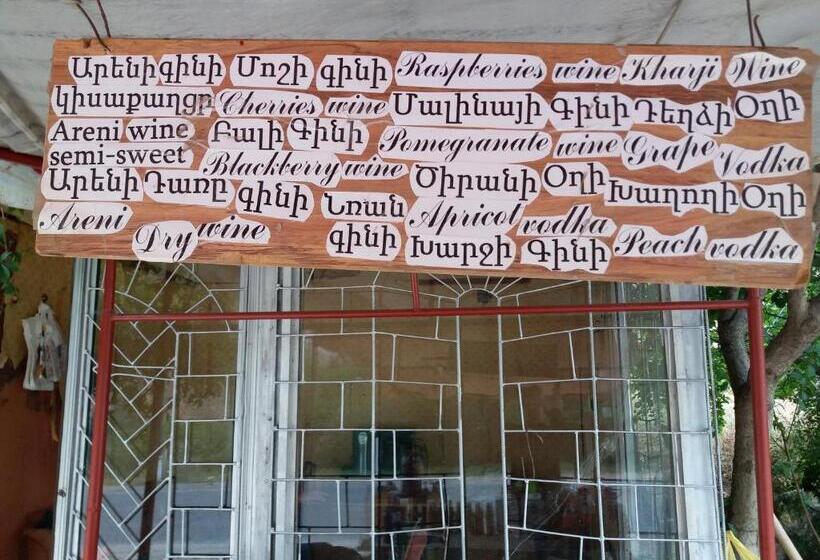 Արենի գինի
կիսաքաղցր
Areni wine
semi-sweet
Արենի Դառը գինի
Areni Dry wine
Մոշի գինի
Cherries wine
Բալի Գինի
Blackberry wine
Նռան գինի
Raspberries wine
Մալինայի Գինի
Pomegranate wine
Ծիրանի Օղի
Apricot vodka
Խարջի Գինի
Kharji Wine
Դեղձի Օղի
Grape Vodka
Խաղողի Օղի
Peach vodka